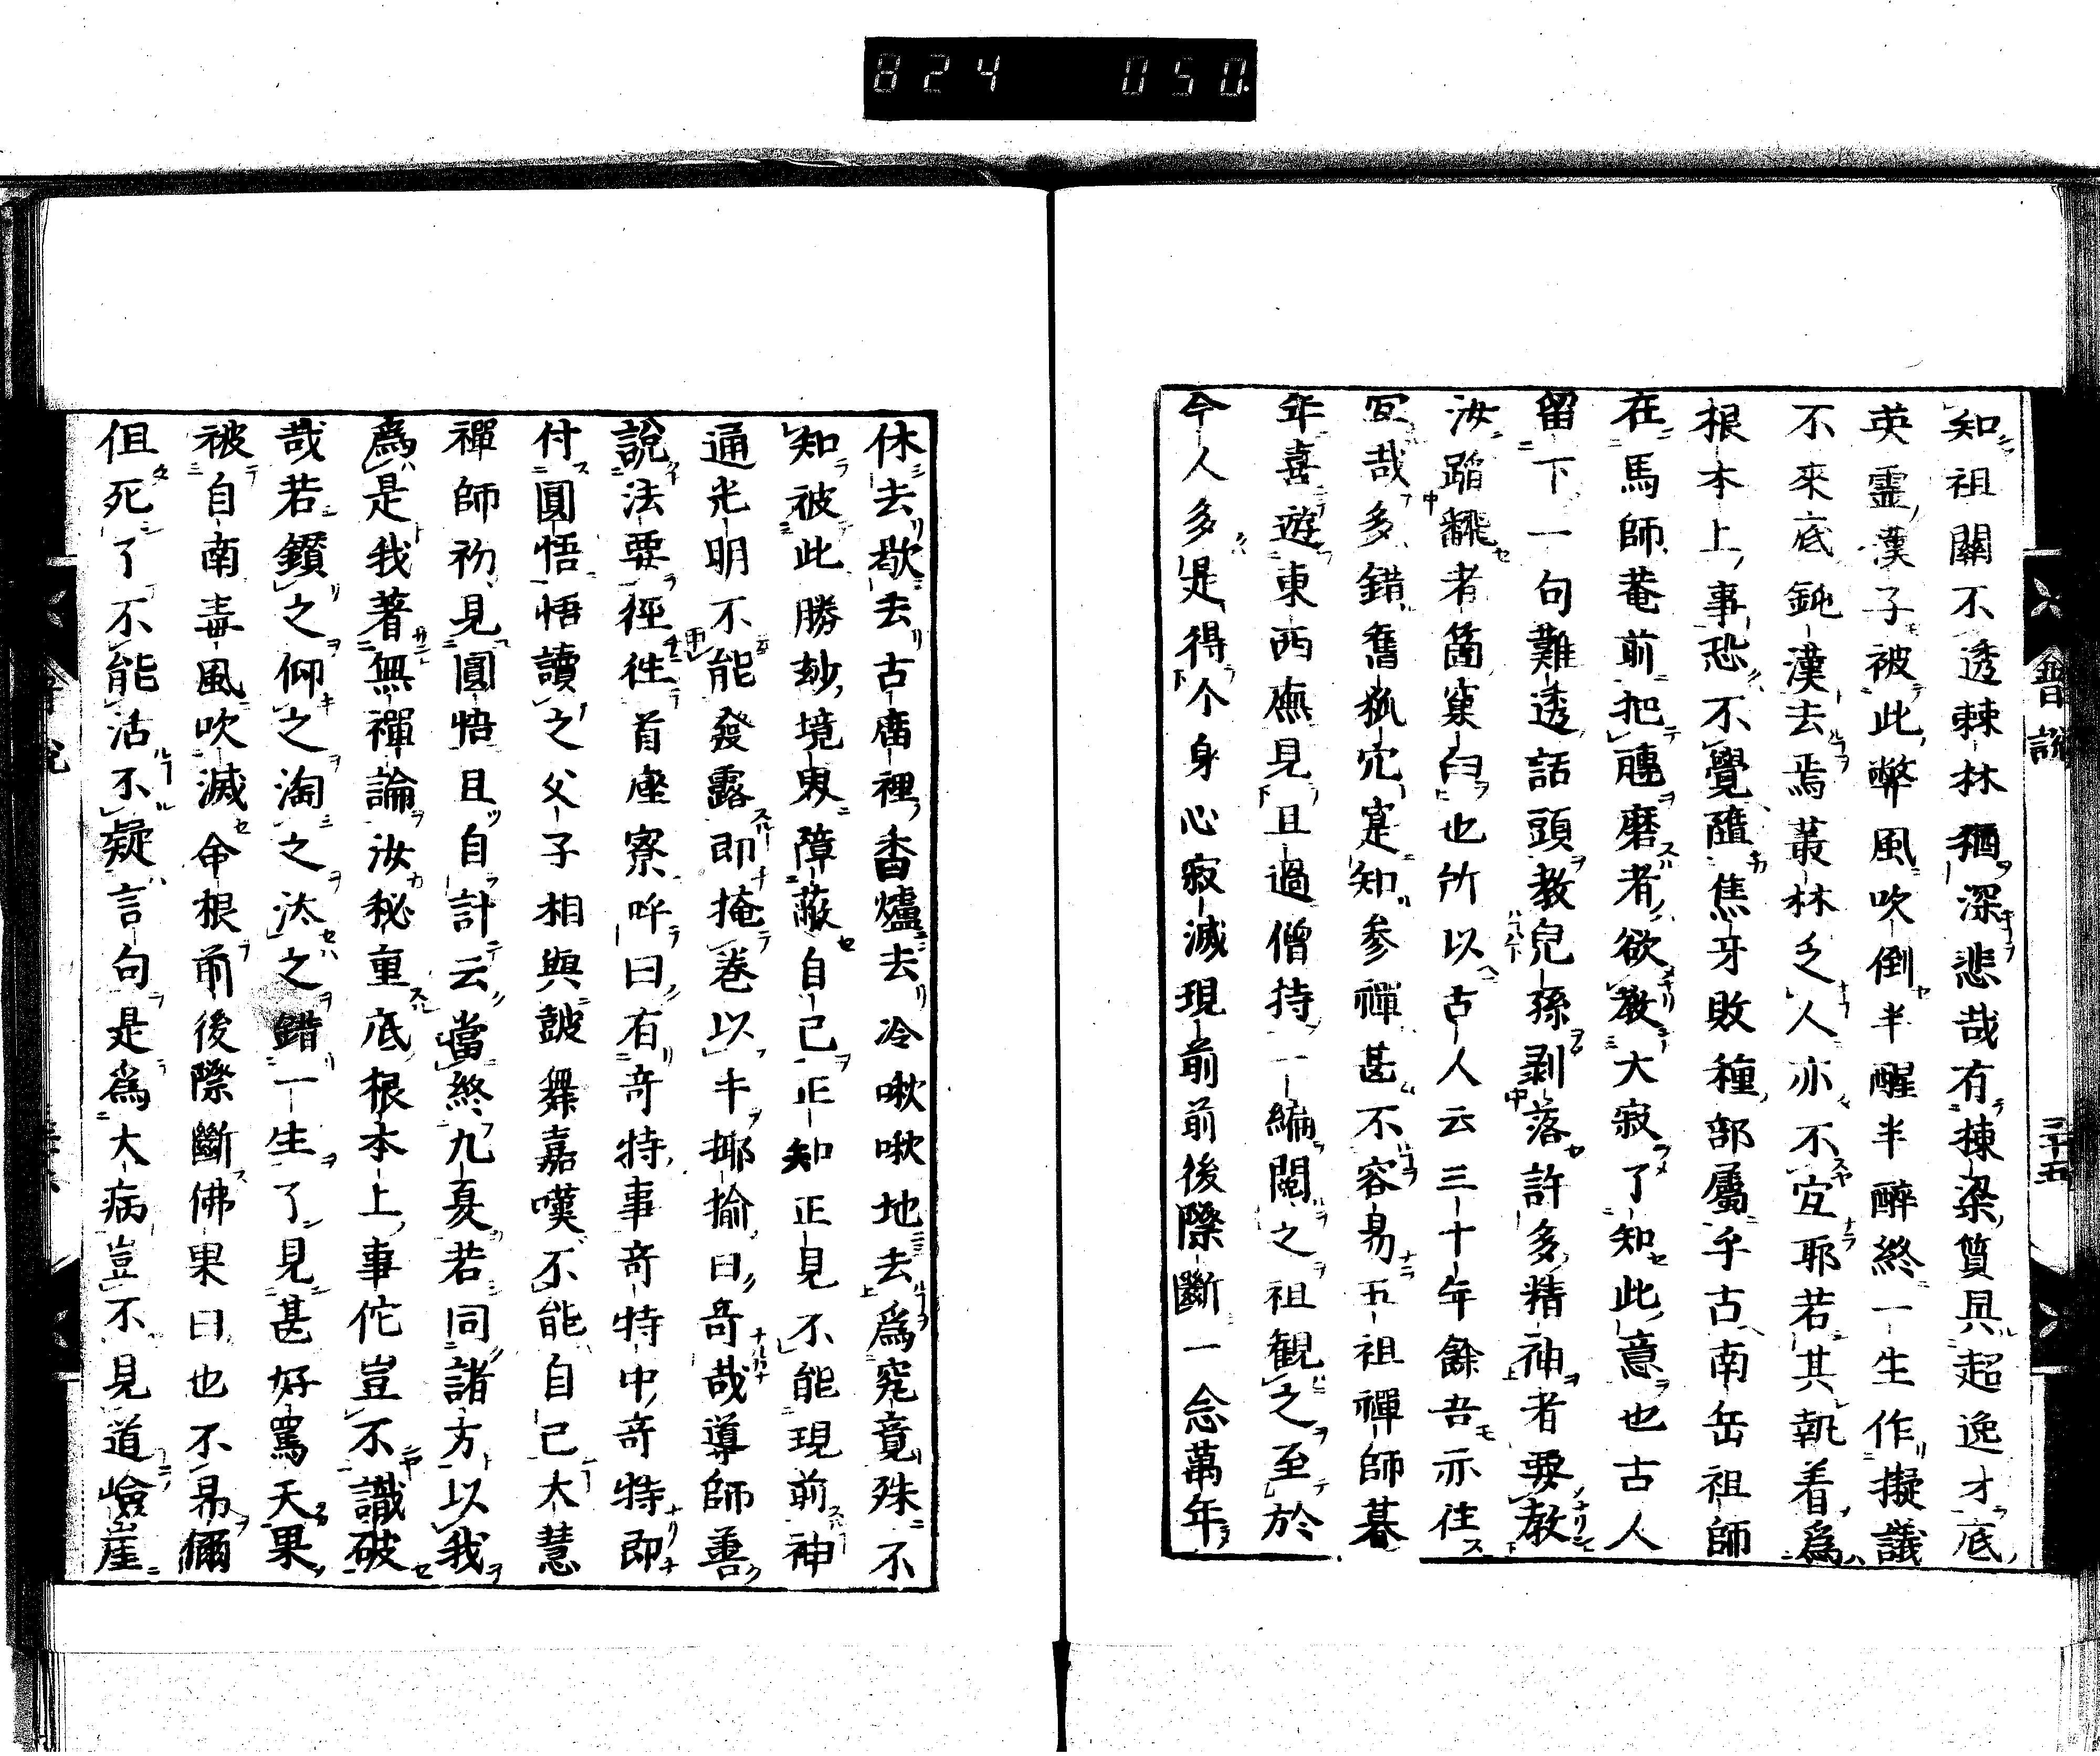 824 050.
知祖關不透棘林猶深悲哉有棟梁質具超逸才底
英靈漢子被此弊風吹倒半醒半醉終一生作擬議
不來底鈍漢去焉叢林乏人亦不宜耶若其執着爲
根本上事恐不覺墮焦牙敗種部屬乎古南岳祖師
在馬師菴前把甎磨者欲教大寂了知此意也古人
留下一句難透話頭教兒孫剥落許多精神者要教
汝踏飜者箇窠臼也所以古人云三十年餘吾亦住
宜哉多錯舊狐穴寔知参禪甚不容易五祖禪師暮
年喜遊東西廡見且過僧持一編閲之祖観之至於
今人多是得个身心寂滅現前前後際斷一念萬年
普説 三十五
休去歇去古廟裡香爐去冷啾啾地去爲究竟殊不
知被此勝玅境界障蔽自己正知正見不能現前神
通光明不能發露即掩巻以手揶揄曰竒哉導師善
說法要徑徃首座寮呼曰有竒特事竒特中竒特即
付圓悟悟讀之父子相與皷舞嘉嘆不能自已大慧
禪師初見圓悟且自計云當終九夏若同諸方以我
爲是我著無禪論汝秘重底根本上事佗豈不識破
哉若鑽之仰之淘之汰之錯一生了見甚好罵天果
被自南毒風吹滅命根前後際斷佛果曰也不易儞
但死了不能活不疑言句是爲大病豈不見道嶮崖